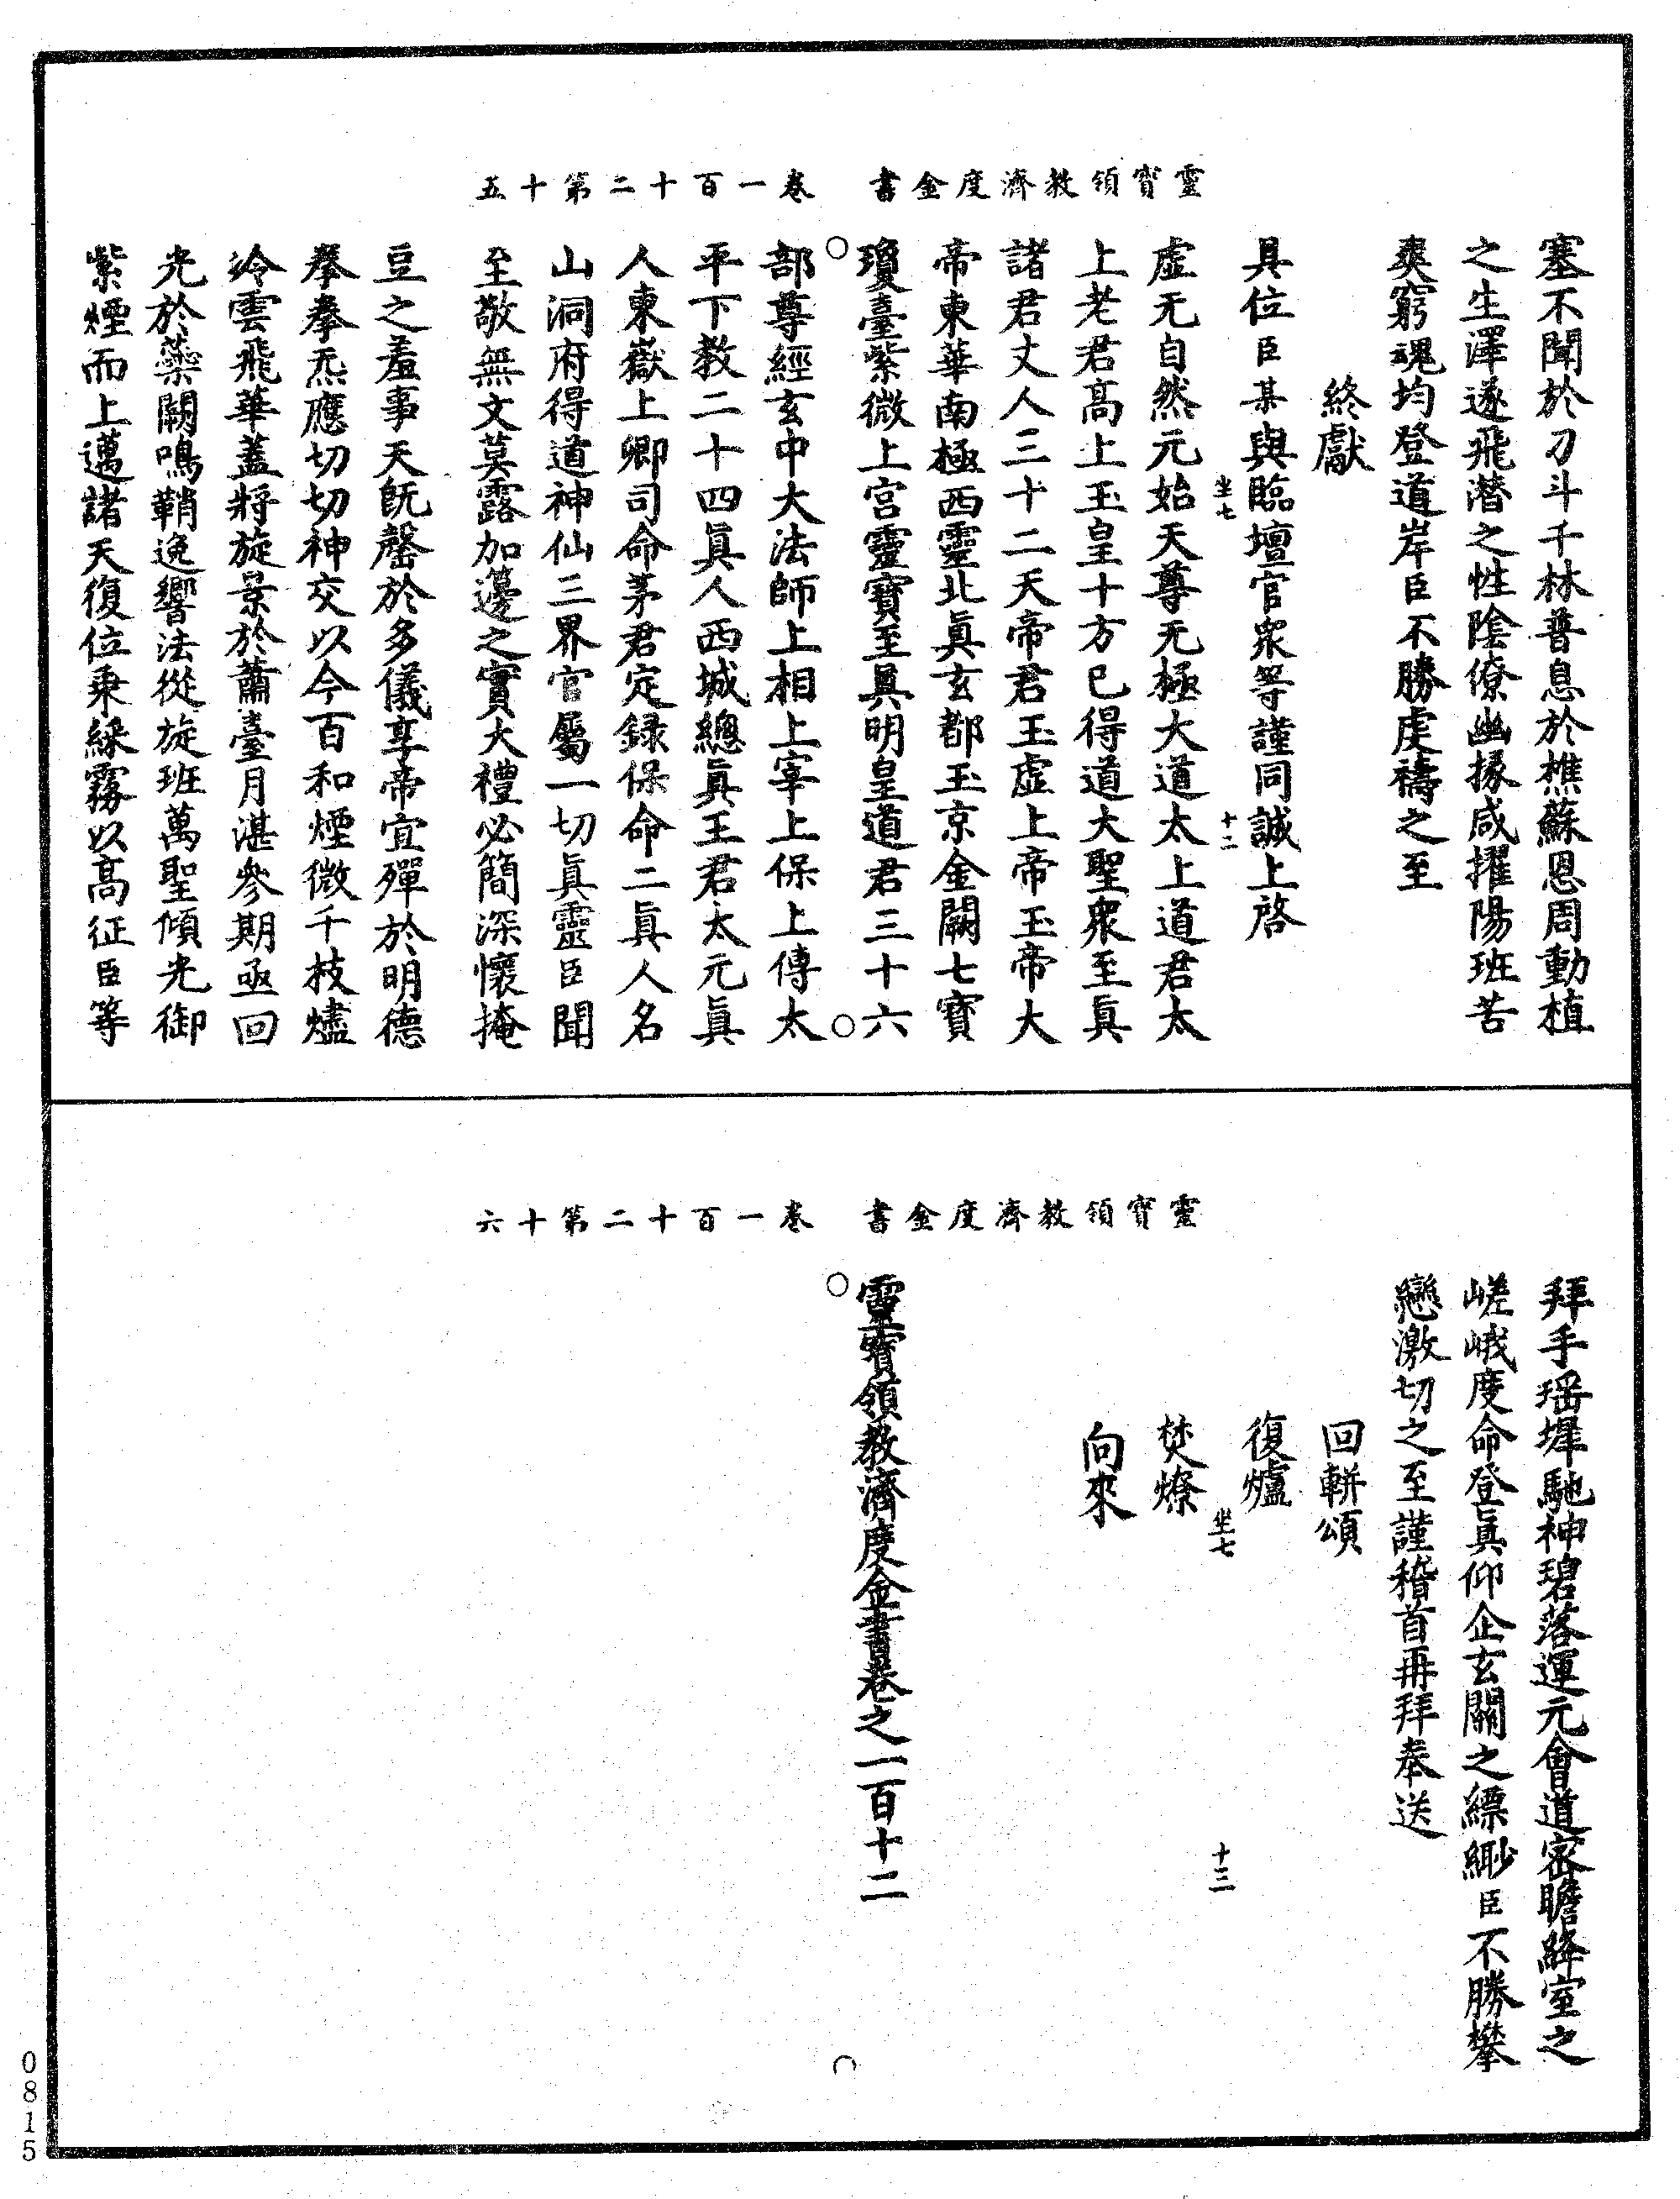 靈寶領教濟度金書　卷一百十二第十五
塞不聞於刀斗千林普息於樵蘇恩周動植
之生澤遂飛潛之性陰僚幽掾咸擢陽班苦
爽窮魂均登道岸臣不勝虔禱之至
終獻
具位臣某與臨壇官衆等謹同誠上啓
坐七　十二
虛无自然元始天尊无極大道太上道君太
上老君高上玉皇十方已得道大聖衆至眞
諸君丈人三十二天帝君玉虛上帝玉帝大
帝東華南極西靈北眞玄都玉京金闕七寶
瓊臺紫微上宮靈寶至眞明皇道君三十六
部尊經玄中大法師上相上宰上保上傅太
平下教二十四眞人西城總眞王君太元眞
人東嶽上卿司命茅君定録保命二眞人名
山洞府得道神仙三界官屬一切眞靈臣聞
至敬無文莫露加籩之實大禮必簡深懷掩
豆之羞事天旣罄於多儀享帝宜殫於明德
拳拳炁應切切神交以今百和煙微千枝燼
冷雲飛華蓋將旋景於蕭臺月湛參期亟回
光於蘂闕鳴鞘逸響法從旋班萬聖傾光御
紫煙而上邁諸天復位乘綵霧以高征臣等
靈寶領教濟度金書　卷一百十二第十六
拜手瑶墀馳神碧落運元會道密瞻絳室之
嵯峨度命登眞仰企玄關之縹緲臣不勝攀
戀激切之至謹稽首再拜奉送
回軿頌
復爐
坐七　十三
焚燎
向來
靈寶領教濟度金書卷之一百十二
0815